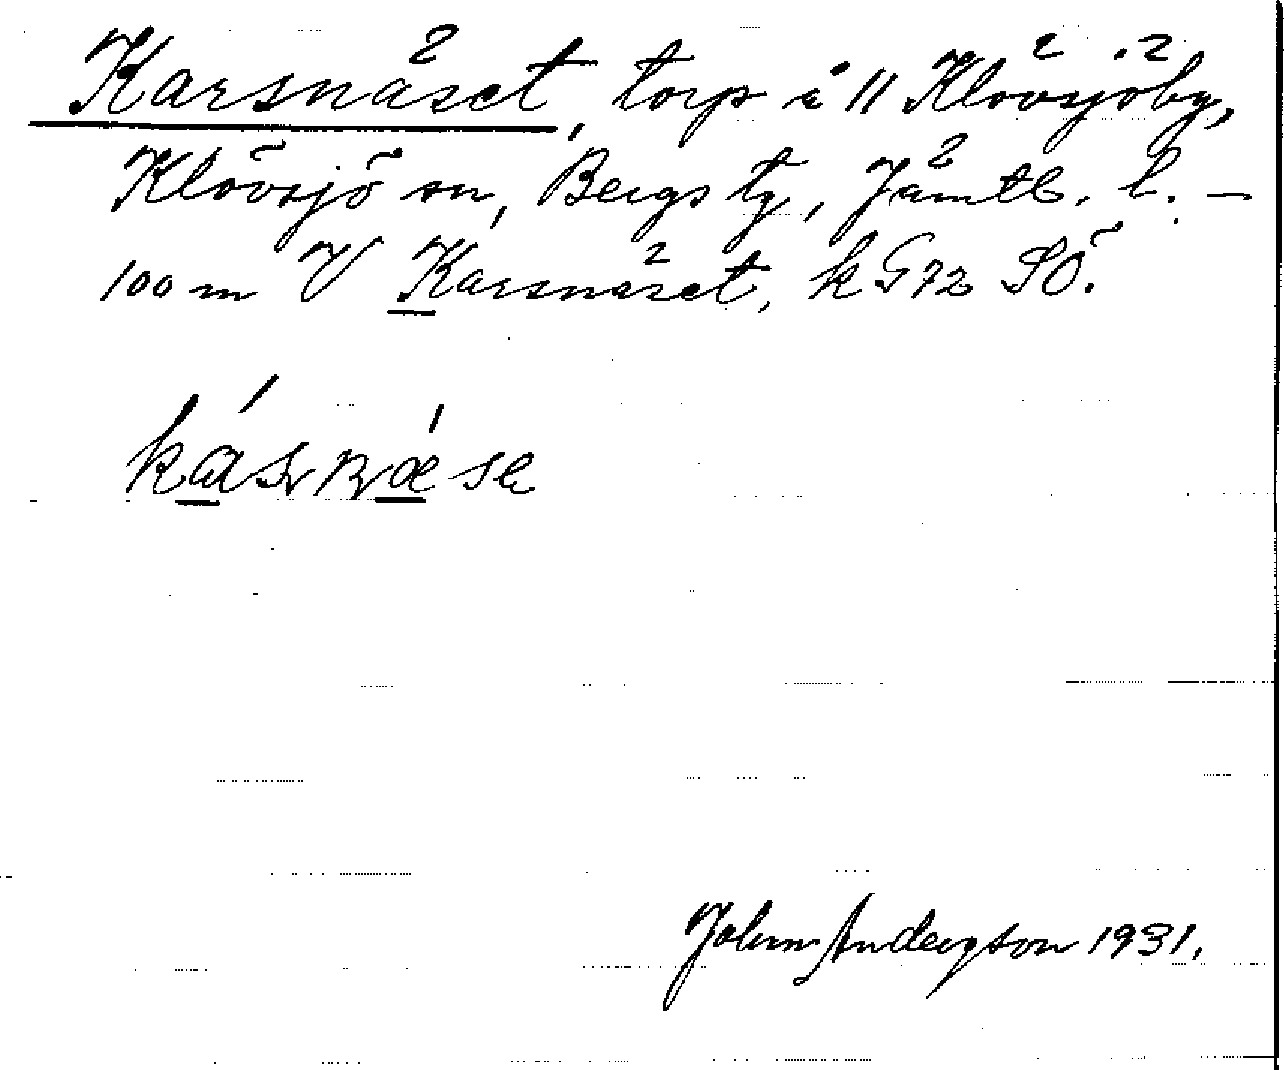 Karsnäset, torp å 11 Klövsjöby,
Klövsjö sn, Bergs tg, Jämtl. l. –
100 m V Karsnäset, k G72 SÖ.
John Anderson 1931.